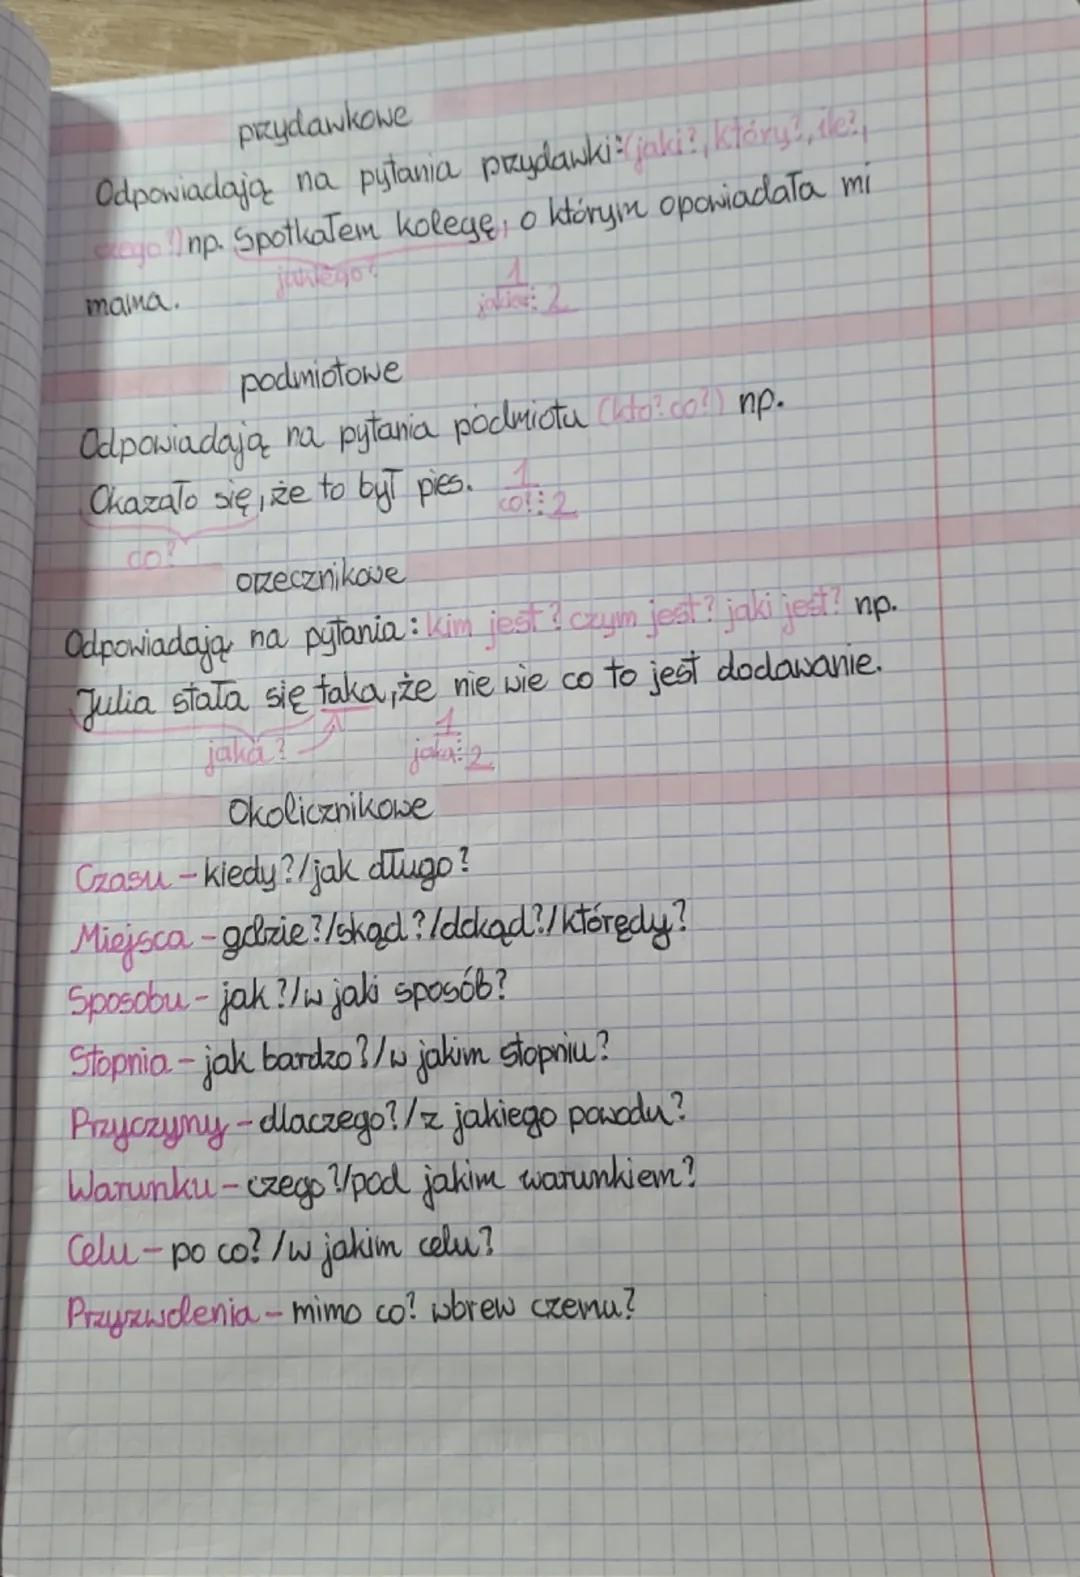 przydawkowe
Odpowiadają na pytania przydawki: (jaki?, który?, ile?,
czego?) np. Spotkałem kolegę, o którym opowiadała mi
jakiego? 1
mama. jakiego: 2
podmiotowe
Odpowiadają na pytania podmiotu (kto? co?) np.
Okazało się, że to był pies. 1
co?: 2
co?
orzecznikowe
Odpowiadają na pytania: kim jest? czym jest? jaki jest? np.
Julia stała się taka, że nie wie co to jest dodawanie.
1
jaka? jaka: 2
Okolicznikowe
Czasu - kiedy?/jak długo?
Miejsca - gdzie?/skąd?/dokąd?/którędy?
Sposobu - jak?/w jaki sposób?
Stopnia - jak bardzo?/w jakim stopniu?
Przyczyny - dlaczego?/z jakiego powodu?
Warunku - czego?/pod jakim warunkiem?
Celu - po co?/w jakim celu?
Przyzwolenia - mimo co? wbrew czemu?